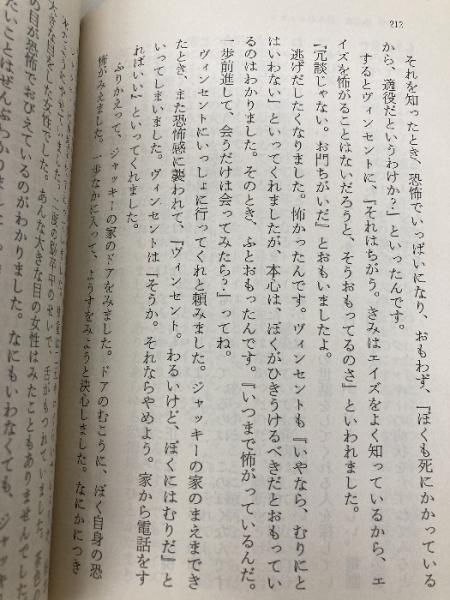 212
それを知ったとき、恐怖でいっぱいになり、おもわず、『ぼくも死にかかっている
から、適役だというわけか?』といったんです。
するとヴィンセントに、『それはちがう。きみはエイズをよく知っているから、エ
イズを怖がることはないだろうと、そうおもってるのさ』といわれました。
『冗談じゃない。お門ちがいだ』とおもいましたよ。
逃げだしたくなりました。怖かったんです。ヴィンセントも『いやなら、むりにと
はいわない』といってくれましたが、本心は、ぼくがひきうけるべきだとおもってい
るのはわかりました。そのとき、ふとおもったんです。『いつまで怖がっているんだ。
一歩前進して、会うだけは会ってみたら?』ってね。
ヴィンセントにいっしょに行ってくれと頼みました。ジャッキーの家のまえまでき
たとき、また恐怖感に襲われて、『ヴィンセント。わるいけど、ぼくにはむりだ』と
いってしまいました。ヴィンセントは『そうか。それならやめよう。家から電話をす
ればいい』といってくれました。
ふりかえって、ジャッキーの家のドアをみました。ドアのむこうに、ぼく自身の恐
怖がみえました。一歩なかに入って、ようすをみようと決心しました。なかにつき
大きな目をした女性でした。あんな大きな目の女性はみたこともありませんでした。
の目が恐怖でおびえているのがわかりました。なにもいわなくても、ジャッキ
たいことはぜんぶわかりました。